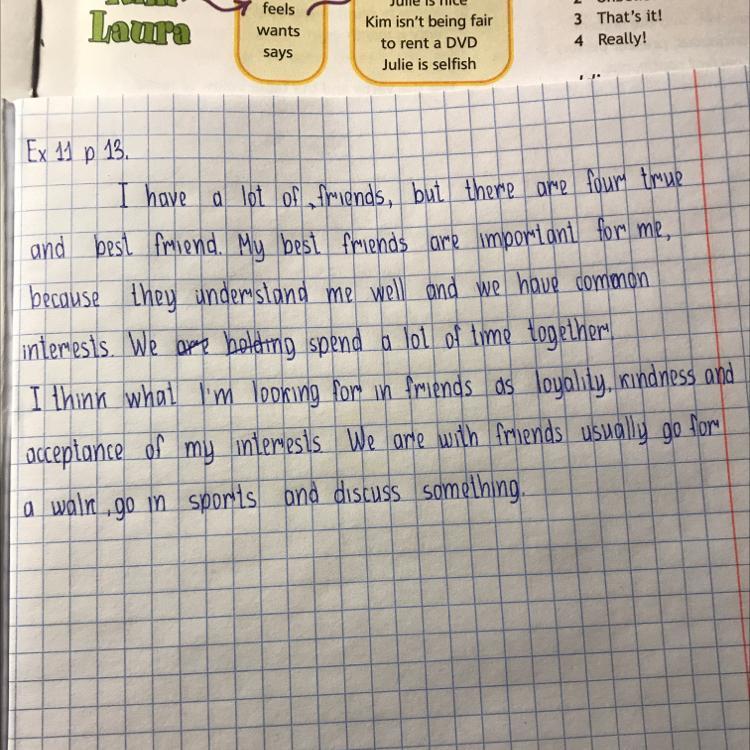 Laura
feels
wants
says
Julie is nice
Kim isn't being fair
to rent a DVD
Julie is selfish
3 That's it!
4 Really!
Ex 11 p 13.
I have a lot of friends, but there are four true
and best friend. My best friends are important for me,
because they understand me well and we have common
interests. We are holding spend a lot of time together
I think what I'm looking for in friends as loyality, kindness and
acceptance of my interests We are with friends usually go for
a walk, go in sports and discuss something.